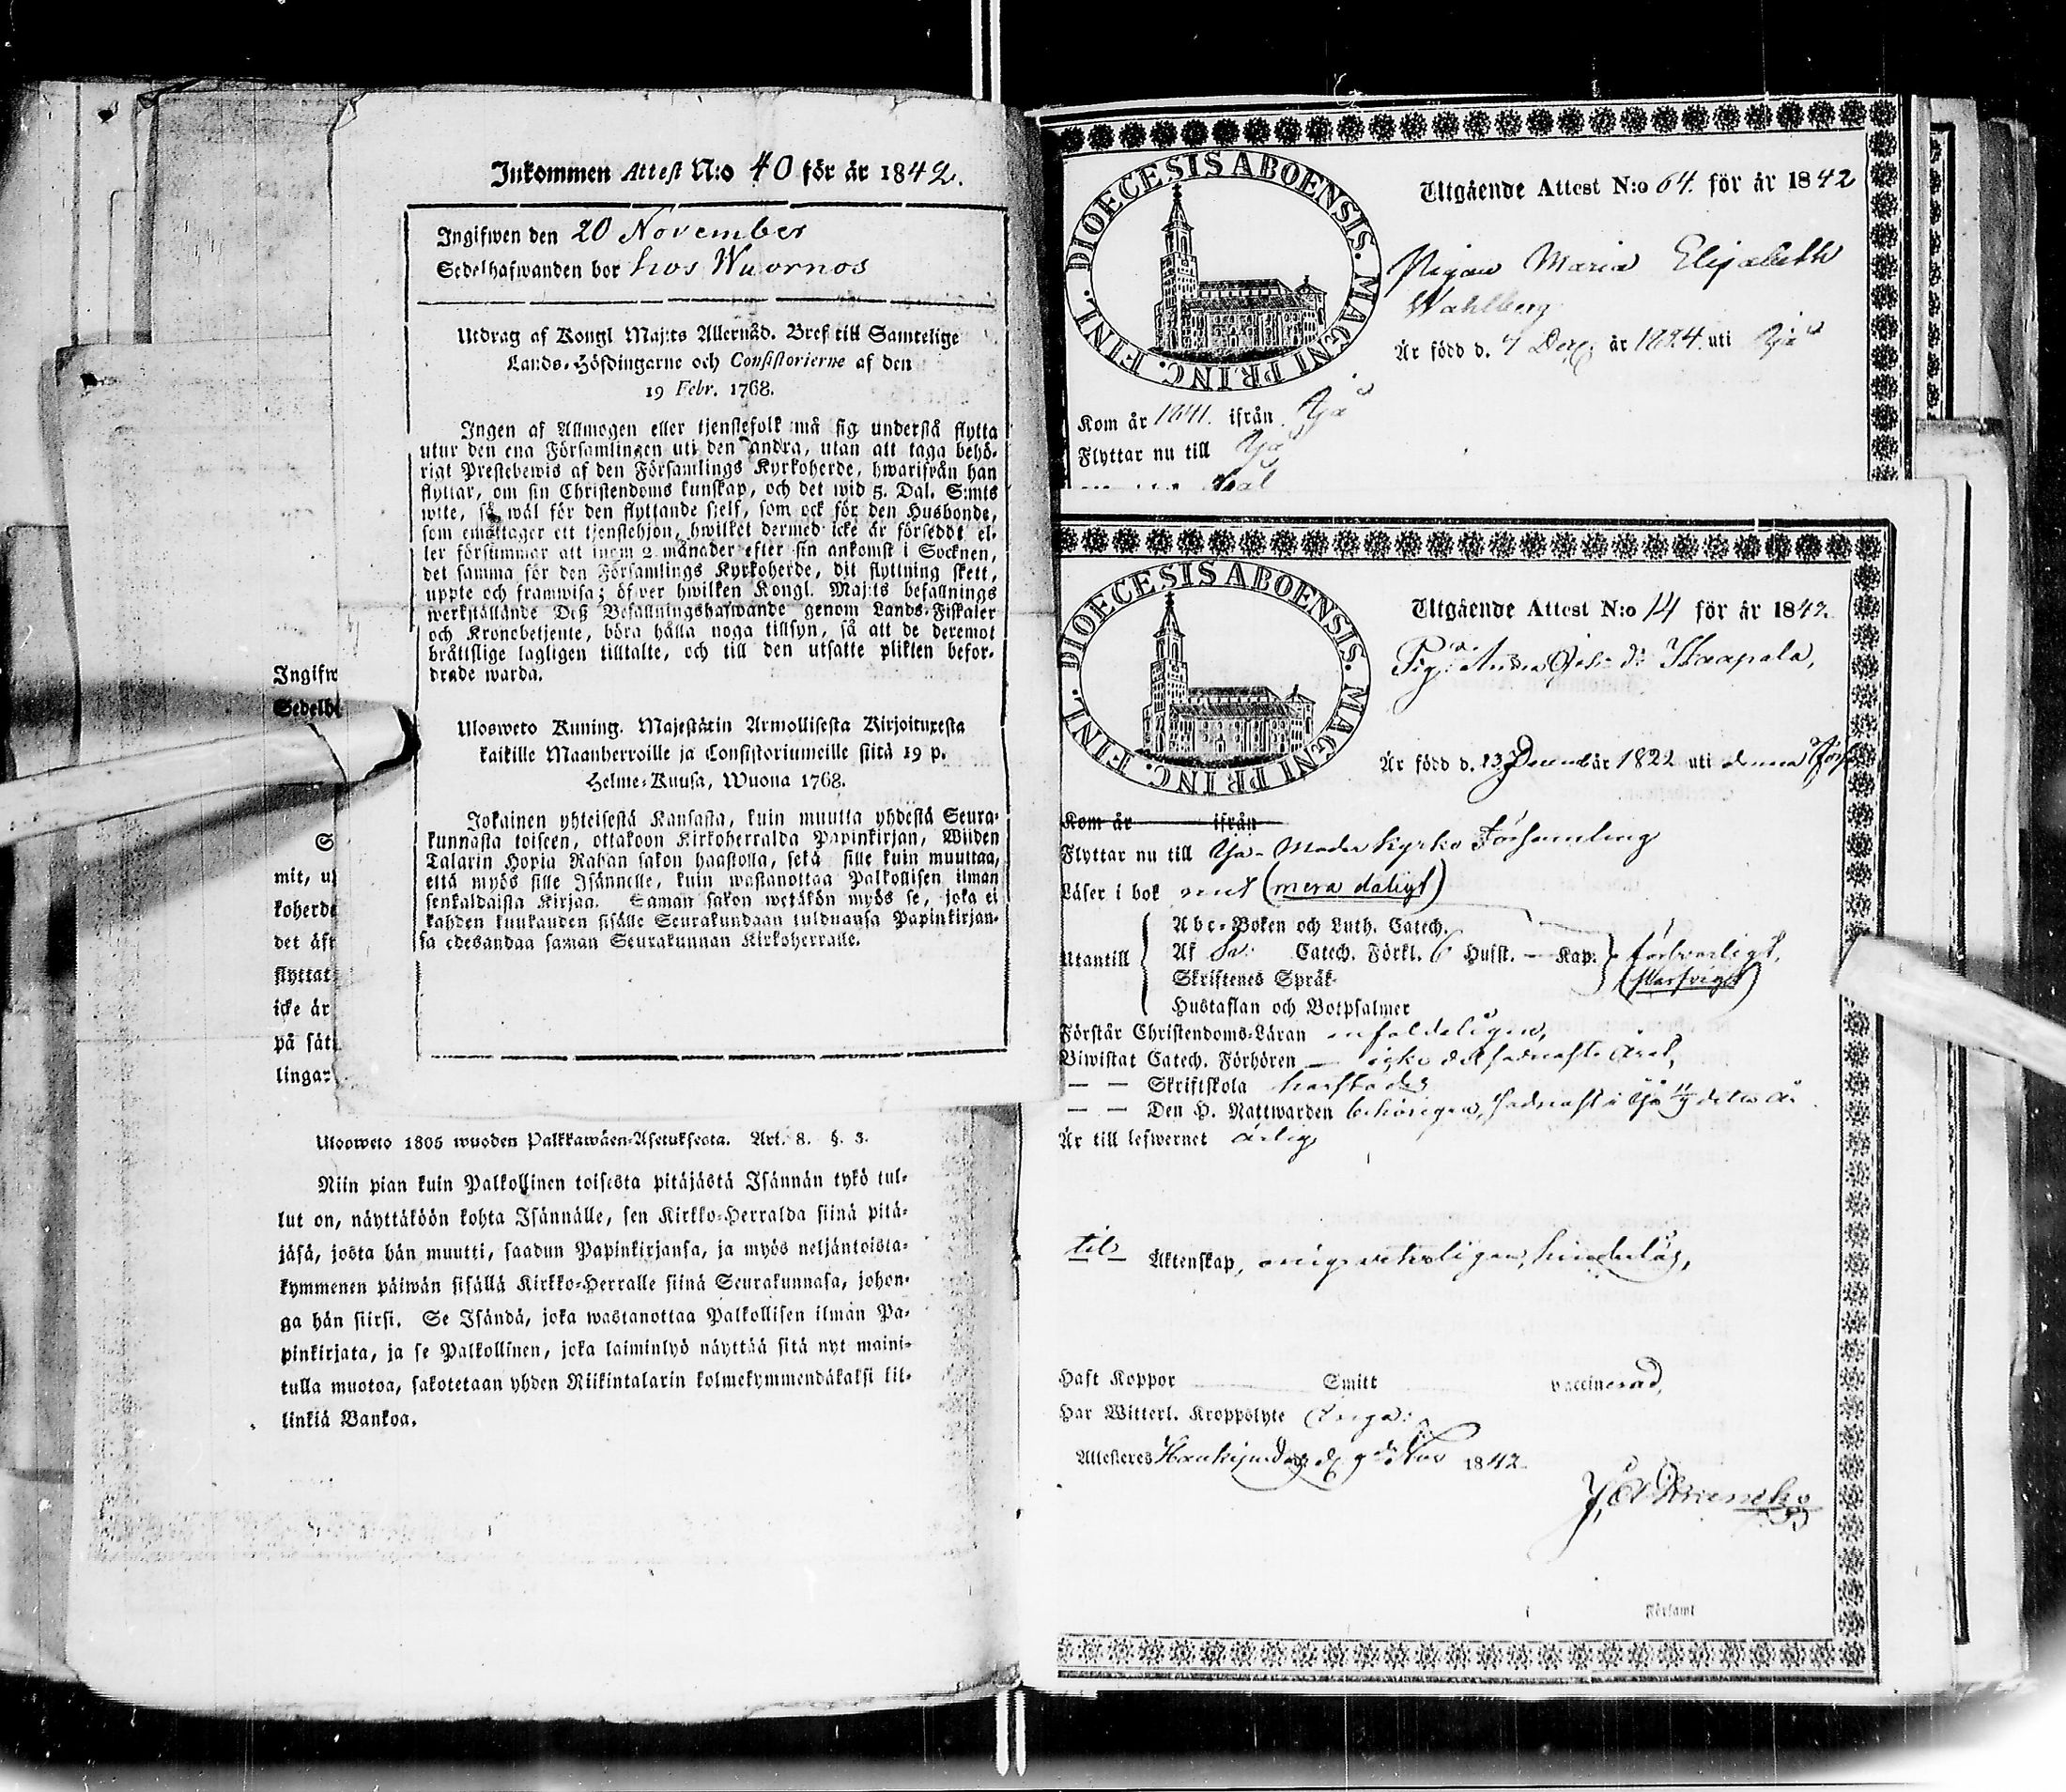 Inkommen Attest N:o 40 för år 1842.
Ingifwen den 20 November
Sedelhafwanden bor hos Wuornos
Utdrag af Kongl Maj:ts Allernåd. Bref till Samtelige
Lands-Höfdingarne och Consistorierne af den
19 Febr. 1768.
Ingen af Allmogen eller tjenstefolk må sig understå flytta
utur den ena Församlingen uti den andra, utan att taga behö-
rigt Prestebewis af den Församlings Kyrkoherde, hwarifrån han
flyttar, om sin Christendoms kunskap, och det wid 5. Dal. S:mts
wite, så wäl för den flyttande sjelf, som ock för den Husbonde,
som emottager ett tjenstehjon, hwilket dermed icke är förseddt el-
ler försummar att inom 2 månader efter sin ankomst i Socknen,
det samma för den Församlings Kyrkoherde, dit flyttning skett,
uppte och framwisa; öfwer hwilken Kongl. Maj:ts befallnings
werkställande Deß Befallningshafwande genom Lands-Fiskaler
och Kronobetjente, böra hålla noga tillsyn, så att de deremot
bråttslige lagligen tilltalte, och till den utsatte plikten befor-
drade warda.
Ulosweto Kuning. Majestätin Armollisesta Kirjoituxesta
kaikille Maanherroille ja Consistoriumeille siitä 19 p.
Helme-Kuusa, Wuona 1768.
Jokainen yhteisestä Kansasta, kuin muutta yhdestä Seura-
kunnasta toiseen, ottakoon Kirkoherralda Papinkirjan, Wiiden
Talarin Hopia Rahan sakon haastolla, sekä sille kuin muuttaa,
että myös sille Isännelle, kuin wastanottaa Palkollisen ilman
senkaldaista Kirjaa. Saman sakon wetäkön myös se, joka ei
kahden kuukauden sisälle Seurakundaan tulduansa Papinkirjan-
sa edesandaa saman Seurakunnan Kirkoherralle.
Ingifw
Sedelh
S
mit, u
koherde
det äfw
flyttat
icke är
på sät
lingar
Ulosweto 1805 wuoden Palkkawäen-Asetuksesta. Art. 8. §. 3.
Niin pian kuin Palkollinen toisesta pitäjästä Isännän tykö tul-
lut on, näyttäköön kohta Isännälle, sen Kirkko-Herralda siinä pitä-
jäsä, josta hän muutti, saadun Papinkirjansa, ja myös neljäntoista-
kymmenen päiwän sisällä Kirkko-Herralle siinä Seurakunnasa, johon-
ga hän siirsi. Se Isändä, joka wastanottaa Palkollisen ilman Pa-
pinkirjata, ja se Palkollinen, joka laiminlyö näyttää sitä nyt maini-
tulla muotoa, sakotetaan yhden Riikintalarin kolmekymmendäkaksi kil-
linkiä Bankoa.
DIOECESIS ABOENSIS. MAGNI PRINC. FINL.
Utgående Attest N:o 64. för år 1842
Pigan Maria Elisabeth
Wahlberg
Är född d. 7 Dec: år 1824. uti Yja
Kom år 1841. ifrån Yja
Flyttar nu till Yja
DIOECESIS ABOENSIS. MAGNI PRINC. FINL.
Utgående Attest N:o 14 för år 1842.
Pig: Anna Haapala,
Är född d. 13 Decemb år 1822 uti denna
Kom år ifrån
Flyttar nu till Moder kyrko Församling
Läser i bok (mera daligt)
Utantill
Abc-Boken och Luth. Catech.
Af Catech. Förkl. 6 Husst. — Kap.
Skriftenes Språk
Hustaflan och Botpsalmer
försvarligt,
Förstår Christendoms-Läran enfaldeligen,
Biwistat Catech. Förhören —
— — Skriftskola
— — Den H. Nattwarden behörigen, sednast i
Är till lefwernet ärlig
till Äktenskap,
Haft Koppor Smitt vaccinerad,
Har Witterl. Kroppslyte Inga:
Attesteres Honkijoki d. 9 Nov 1842.
Församl